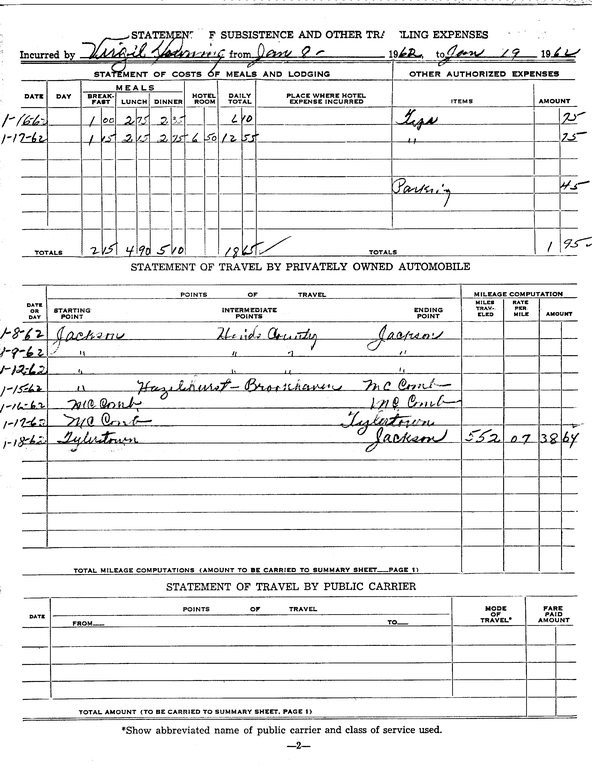 STATEMENT F SUBSISTENCE AND OTHER TRA LING EXPENSES
Incurred by Virgil Downing from Jan 8 - 1962, to Jan 19 1962
STATEMENT OF COSTS OF MEALS AND LODGING OTHER AUTHORIZED EXPENSES
MEALS
DATE DAY BREAK-FAST LUNCH DINNER HOTEL ROOM DAILY TOTAL PLACE WHERE HOTEL EXPENSE INCURRED ITEMS AMOUNT
1-16-62 1 00 2 75 2 35 6 10 Tips 75
1-17-62 1 15 2 15 2 75 6 50 12 55 " 75
Parking 45
TOTALS 2 15 4 90 5 10 18 65 ✓ TOTALS 1 95
STATEMENT OF TRAVEL BY PRIVATELY OWNED AUTOMOBILE
POINTS OF TRAVEL MILEAGE COMPUTATION
DATE OR DAY STARTING POINT INTERMEDIATE POINTS ENDING POINT MILES TRAV-ELED RATE PER MILE AMOUNT
1-8-62 Jackson Hinds County Jackson
1-9-62 " " " "
1-12-62 " " " "
1-15-62 " Hazelhurst - Brookhaven Mc Comb
1-16-62 Mc Comb Mc Comb
1-17-62 Mc Comb Tylertown
1-18-62 Tylertown Jackson 552 07 38 64
TOTAL MILEAGE COMPUTATIONS (AMOUNT TO BE CARRIED TO SUMMARY SHEET PAGE 1)
STATEMENT OF TRAVEL BY PUBLIC CARRIER
DATE POINTS OF TRAVEL MODE OF TRAVEL* FARE PAID AMOUNT
FROM TO
TOTAL AMOUNT (TO BE CARRIED TO SUMMARY SHEET, PAGE 1)
*Show abbreviated name of public carrier and class of service used.
—2—